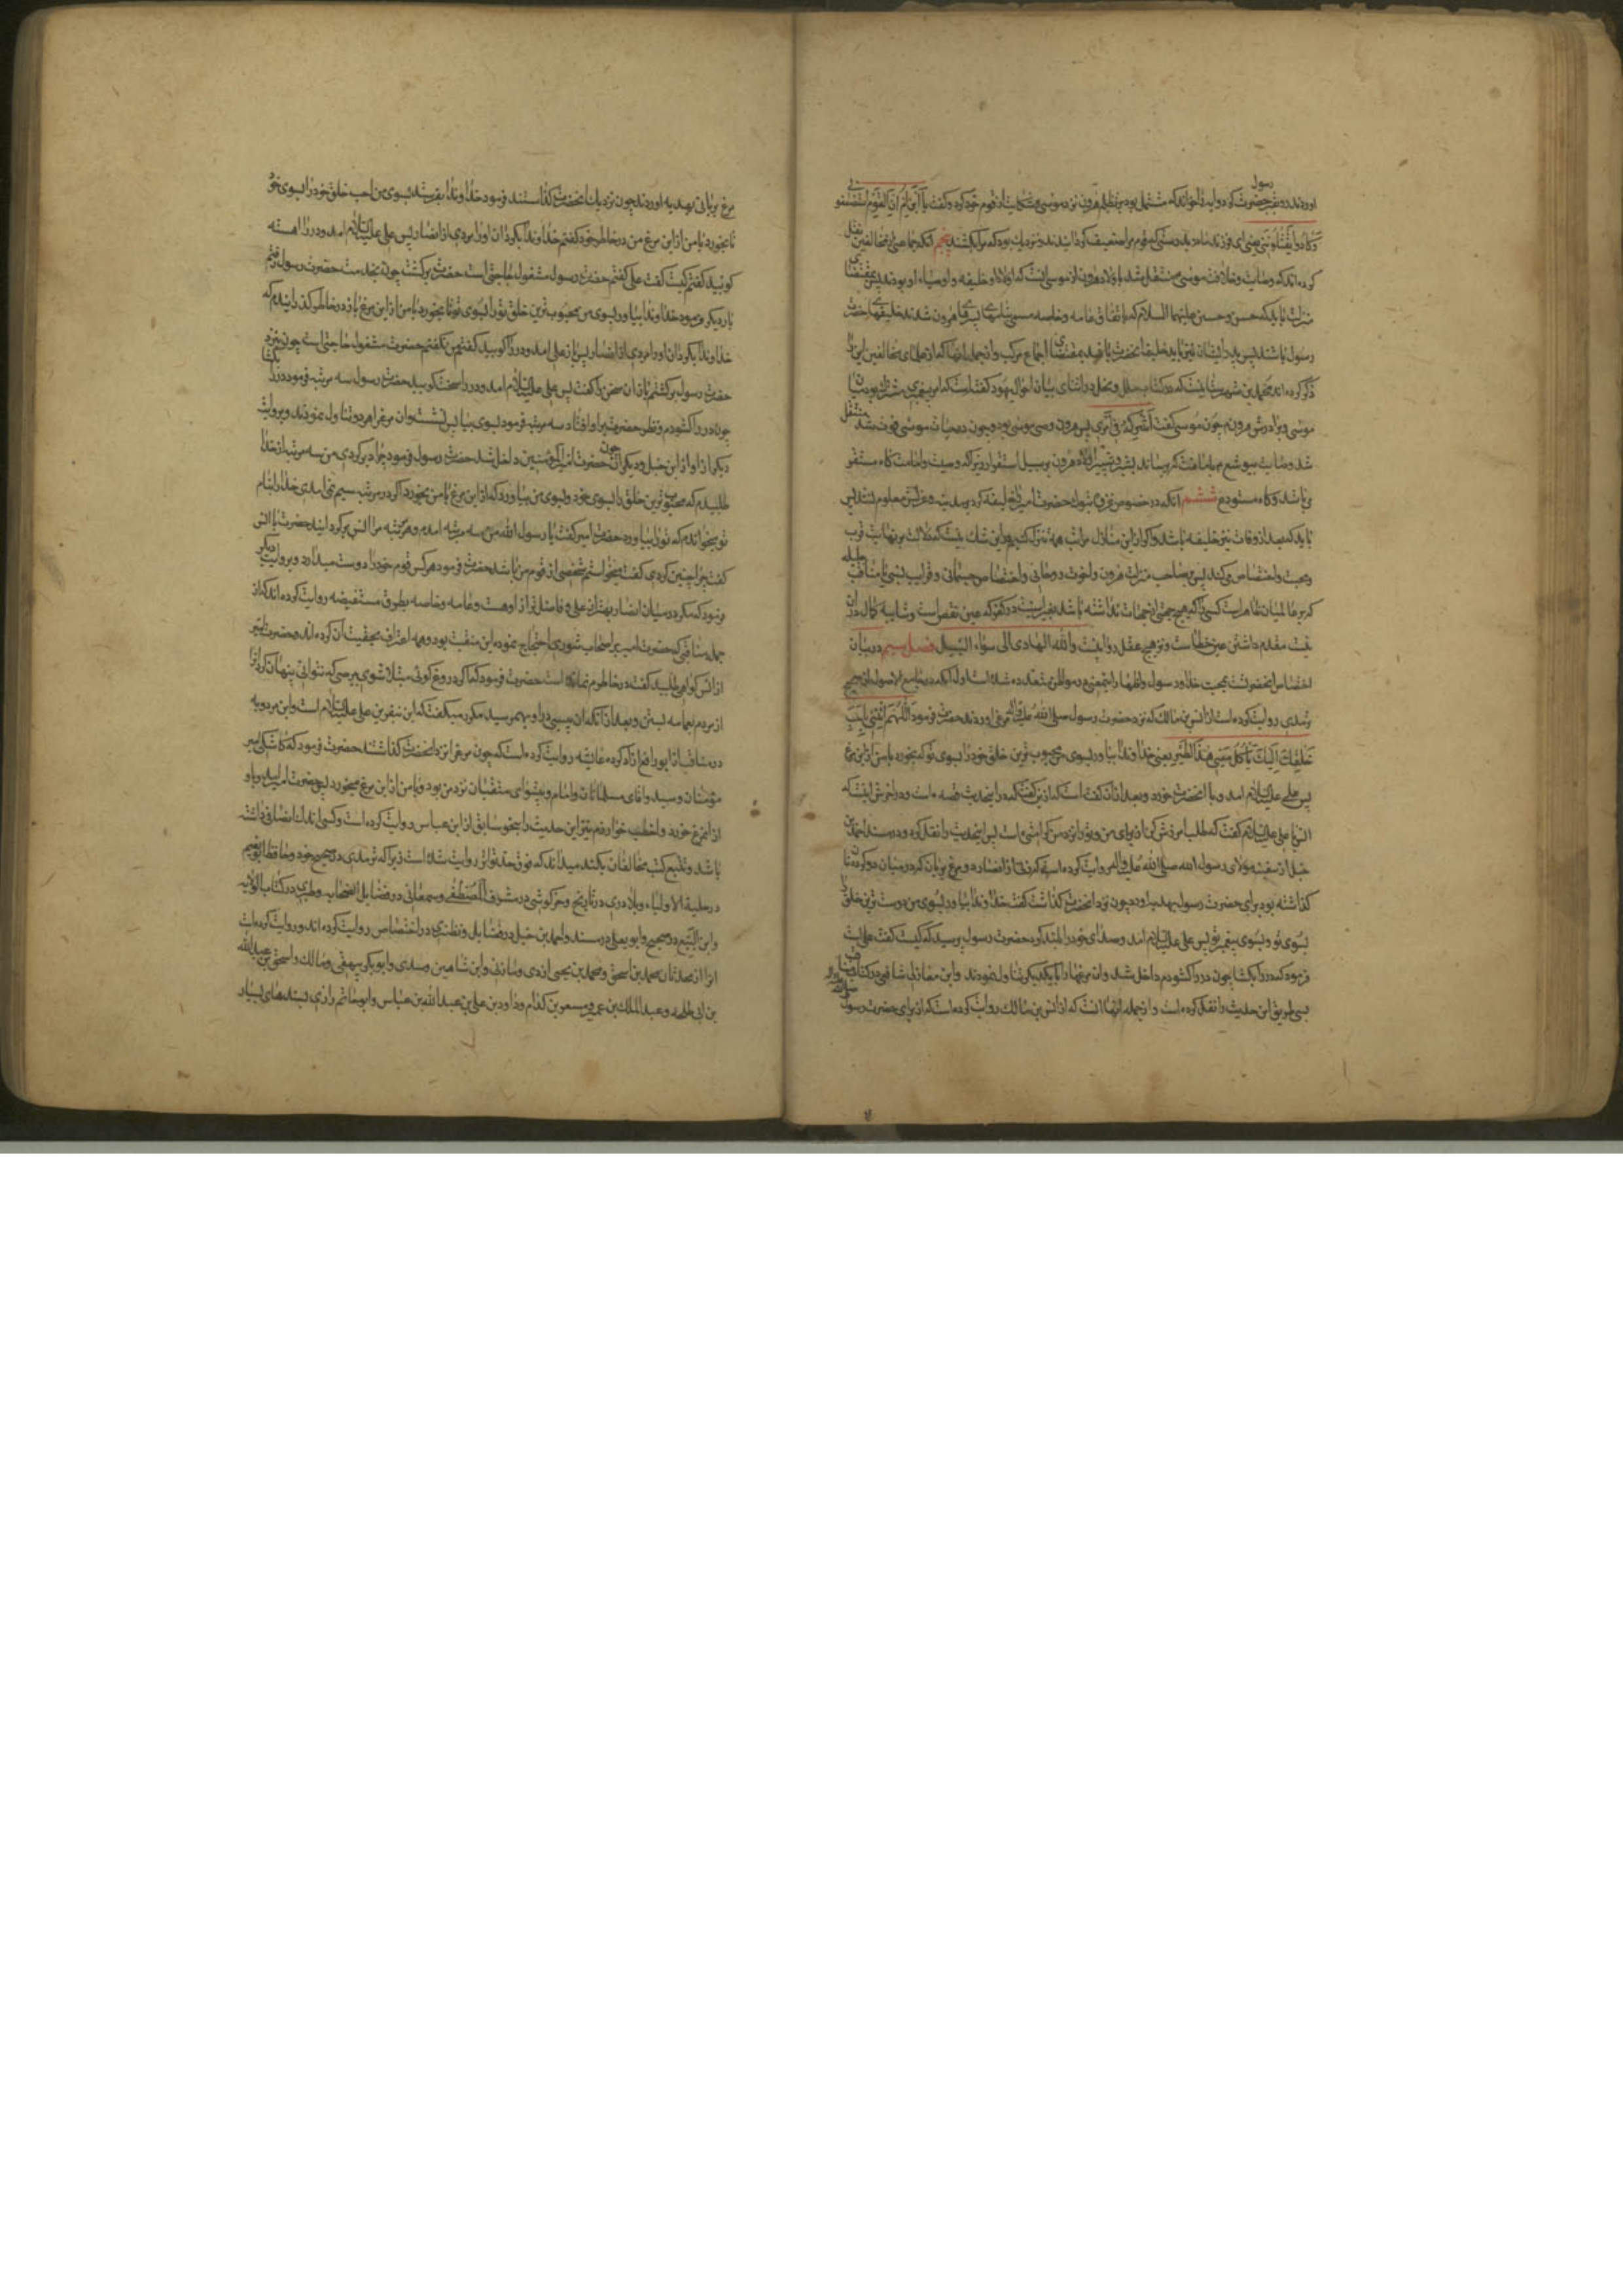 اوردند و بقبر حضرت رسول کردوایه را خواند که مشتمل بود بر تظلم هرون نزد موسی و شکایت از قوم خود که گفت یا ابن ام ان القوم استضعفونی
و کادوا یقتلوننی یعنی ای فرزند مادر بدرستی که قوم مرا ضعیف گردانیدند و نزدیک بود که مرا بکشند پنجم آنکه جماعتی از مخالفین نقل
کرده‌اند که وصایت و خلافت موسی منتقل شد باولاد هرون از موسی
منزلت باید که حسن و حسین علیهما السلام که باتفاق عامه و خاصه مسمی به پسرهای هرون شدند خلیفهای حضرت
رسول باشند پس پدر ایشان نیز باید خلیفه آنحضرت باشد بمقتضای اجماع مرکب و از جمله آنها که از علمای مخالفین این را
ذکر کرده‌اند محمد بن شهرستانیست که در کتاب ملل و نحل در اثنای بیان احوال یهود گفته است که امر پیغمبری مشترک بود میان
موسی و برادرش هرون چون موسی گفت اشرکه فی امری پس هرون وصی موسی بود و چون در حیات موسی فوت شد منتقل
شد وصایت بیوشع
می‌باشد و گاه مستودع ششم آنکه در خصوص غزوه تبوک حضرت امیر را خلیفه کرد بر مدینه و عزلش معلوم نشد پس
باید که بعد از وفات نیز خلیفه باشد و اگر از این منازل مراتب همه
و محبت و اختصاص می‌کند پس صاحب منزلت هرون و اخوت روحانی و اختصاص جسمانی و قرابت نسبی با مناقب جلیله
که بر عالمیان ظاهر است کسی را که هیچ جهتی از جهات نداشته باشد بغیر
مقدم داشتن عین خطاست و نزد هیچ عقل روا نیست والله الهادی الی سواء السبیل فصل سیم در بیان
اختصاص آنحضرتست بمحبت خدا و رسول و اظهار اینمعنی در مواطن متعدده شده است اول آنکه در جامع الاصول از صحیح
ترمذی روایت کرده است از انس بن مالک که نزد حضرت رسول صلی الله علیه واله مرغی اوردند حضرت فرمود اللهم ائتنی باحب
خلقک الیک یأکل معی هذا الطیر یعنی خداوندا بیاور بسوی من محبوب ترین خلق خود را بسوی تو که بخورد با من از این مرغ
پس علی علیه السلام امد و با آنحضرت خورد و بعد از آن گفته است که رزین گفته که در اینحدیث قصه هست و در آخرش اینست که
انس با علی علیه السلام گفت که طلب آمرزش کن از برای من و ترا نزد من که بشارتی است پس اینحدیث را نقل کرد و در مسند احمد بن
حنبل از سفینه مولای رسول الله صلی الله علیه واله روایت کرده است که زنی از انصار دو مرغ بریان که در میان دو کرده نان
گذاشته بود برای حضرت رسول بهدیه اورد چون نزد آنحضرت گذاشت گفت خداوندا بیاور بسوی من دوست ترین خلق را
بسوی تو و بسوی پیغمبر تو پس علی علیه السلام امد و صدای خود را بلند کرد حضرت رسول پرسید که کیست گفت علی است
فرمود که در را بگشا چون در را گشودم داخل شد و آن مرغها را با یکدیگر تناول نمودند و ابن مغازلی شافعی در کتاب مناقب
بسی طریق این حدیث را نقل کرده است و از جمله آنها آنست که از انس بن مالک روایت کرده است که از برای حضرت رسول
مرغ بریانی بهدیه اوردند چون نزدیک آنحضرت گذاشتند فرمود خداوندا بفرست بسوی من احب خلق خود را بسوی خود
تا بخورد با من از این مرغ من در خاطر خود گفتم خداوندا بگردان او را مردی از انصار پس علی علیه السلام امد و در را اهسته
کوبید گفتم کیست گفت علی گفتم حضرت رسول مشغول بحاجتی است حضرت برگشت چون بخدمت حضرت رسول رفتم
بار دیگر فرمود خداوندا بیاور بسوی من محبوب ترین خلق تو را بسوی تو تا بخورد با من از این مرغ باز در خاطر گذرانیدم که
خداوندا بگردان او را مردی از انصار پس باز علی امد و در را کوبید گفتم من نگفتم حضرت مشغول حاجتی است چون بنزد
حضرت رسول برگشتم باز آن سخن را گفت پس علی علیه السلام امد و در را سخت کوبید حضرت رسول سه مرتبه فرمود در را بگشا
چون در را گشودم و نظر حضرت بر او افتاد سه مرتبه فرمود بسوی من بیا پس نشست و آن مرغ را هر دو تناول نمودند و بروایت
دیگر از او از ابن حنبل و دیگران چون حضرت امیر المؤمنین داخل شد حضرت رسول فرمود چرا دیر کردی من سه مرتبه از خدا
طلبیدم که محبوب ترین خلق را بسوی خود و بسوی من بیاورد که از این مرغ با من بخورد اگر در مرتبه سیم نمی‌امدی خدا را بنام
تو میخواندم که تو را بیاورد حضرت امیر گفت یا رسول الله من سه مرتبه امدم و هر مرتبه مرا انس برگردانید حضرت با انس
گفت چرا چنین کردی گفت میخواستم شخصی از قوم من باشد حضرت فرمود هر کس قوم خود را دوست میدارد و بروایت دیگر
فرمود که مگر در میان انصار بهتر از علی و فاضلتر از او هست و عامه و خاصه بطرق مستفیضه روایت کرده‌اند که از
جمله مناقبی که حضرت امیر بر اصحاب شوری احتجاج نمود این منقبت بود و همه اعتراف بحقیت آن کرده‌اند و حضرت امیر
از انس گواهی طلبید گفت در خاطرم نمانده است حضرت فرمود که اگر دروغ گوئی مبتلا شوی ببرصی که نتوانی پنهان کرد آنرا
از مردم بعمامه بستن و بعد از آنکه آن پیسی در او بهم رسید مکرر میگفت که این نفرین علی علیه السلام است و ابن مردویه
در مناقب از ابو رافع آزاد کرده عایشه روایت کرده است که چون مرغ را نزد آنحضرت گذاشتند حضرت فرمود که کاشکی امیر
مؤمنان و سید و اقای مسلمانان و امام و پیشوای متقیان نزد من بود و با من از این مرغ میخورد پس حضرت امیر امد و با او
از آنمرغ خورد و اخطب خوارزم نیز این حدیث را بنحو سابق از ابن عباس روایت کرده است و کسی اندک انصافی داشته
باشد و تتبع کتب مخالفان بکند میداند که فوق حد تواتر روایت شده است زیرا که ترمذی در صحیح خود و حافظ ابو نعیم
در حلیة الاولیاء و بلادری در تاریخ و خرکوشی در شرف المصطفی و سمعانی در فضایل الصحابه و طبری در کتاب الولایه
و ابن البیع در صحیح و ابو یعلی در مسند و احمد بن حنبل در فضایل و نطنزی در اختصاص روایت کرده‌اند و روایت کرده است
انرا از محدثان محمد بن اسحق و محمد بن یحیی ازدی و مازنی و ابن شاهین و سدی و ابوبکر بیهقی و مالک و اسحق بن عبدالله
بن ابی طلحه و عبد الملک بن عمیر و مسعر بن کدام و داود بن علی بن عبد الله بن عباس و ابو حاتم رازی بسندهای بسیار